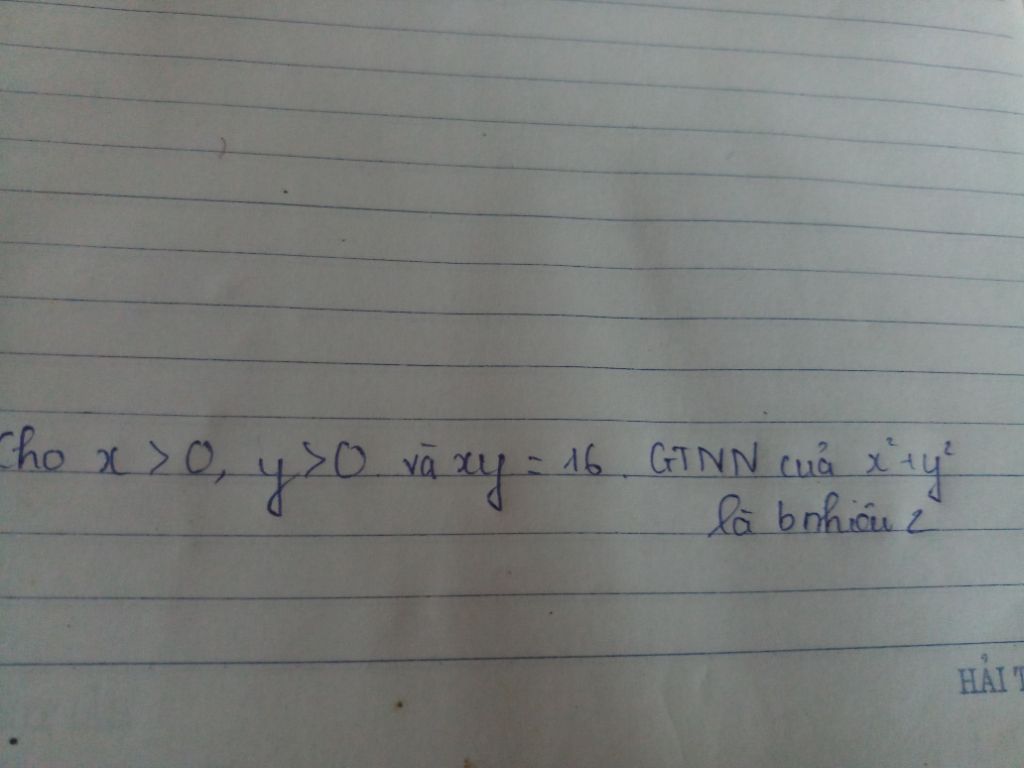 Cho x > 0, y > 0 và xy = 16. GTNN cuả x² + y²
là bnhiêu ?
HẢI T